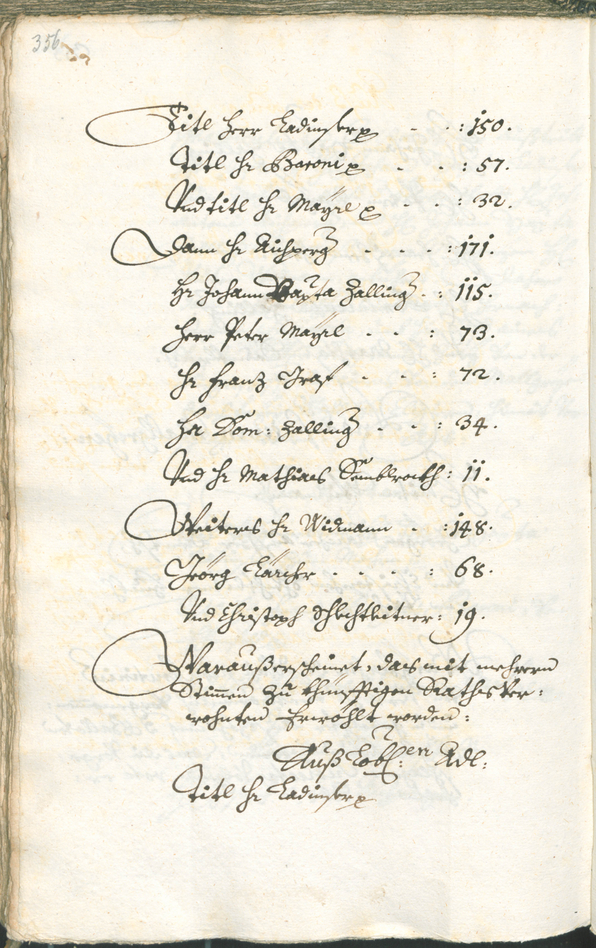 356
Titl Herr Ladinser p - - : 150.
Titl Hr Baroni p - - : 57.
Und titl Hr Mayrl p - - : 32.
Dann Hr Aichperg - - - : 171.
Hr Johann Bapta Zalling - : 115.
Herr Peter Mayrl - - : 73.
Hr Frantz Graf - - : 72.
Hr Dom: Zalling - - : 34.
Und Hr Mathias Semblroth : 11.
Weiters Hr Widmann - : 148.
Geörg Kärcher - - - : 68.
Und Christoph Schlechtleitner : 19.
Warauß erscheinet, das mit mehrern
Stimen zu khünfftigen Rathsver:
wohnten Erwöhlt worden:
Auß Löbl:en Adl:
Titl Hr Ladinser p